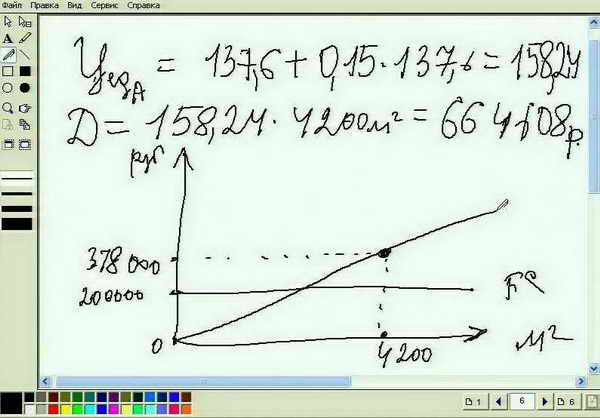 Файл Правка Вид Сервис Справка
A
Цед А = 137,6 + 0,15 · 137,6 = 158,24
Д = 158,24 · 4200м² = 664 608 р.
руб
378 000
200000
FC
0
4200
м²
1
6
6